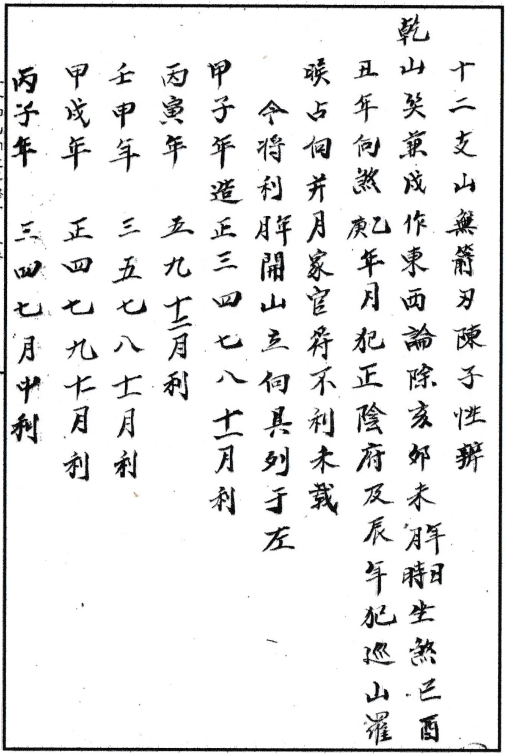 十二支山無箭刃陳子性辨
乾山癸兼戌作東西論除亥卯未年月日時坐煞巳酉
丑年向煞乙庚年月犯正陰府及辰年犯巡山羅
睺占向并月家官符不利未載
今將利年月開山立向具列于左
甲子年造正三四七八十一月利
丙寅年 五九十二月利
壬申年 三五七八十一月利
甲戌年 正四七九十二月利
丙子年 三四七月中利